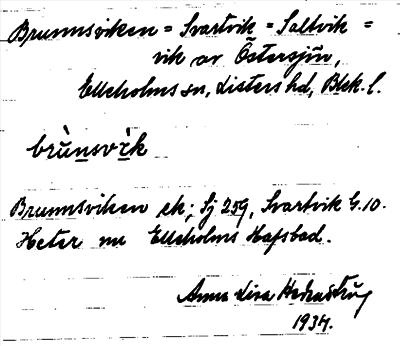 Brunnsviken = Svartvik = Saltvik =
vik av Östersjön,
Elleholms sn, Listers hd, Blek. l.
brùnsvìk
Brunnsviken ek; Sj 259, Svartvik G. 10.
Heter nu Elleholms Hafsbad.
Anna Lisa
1934.